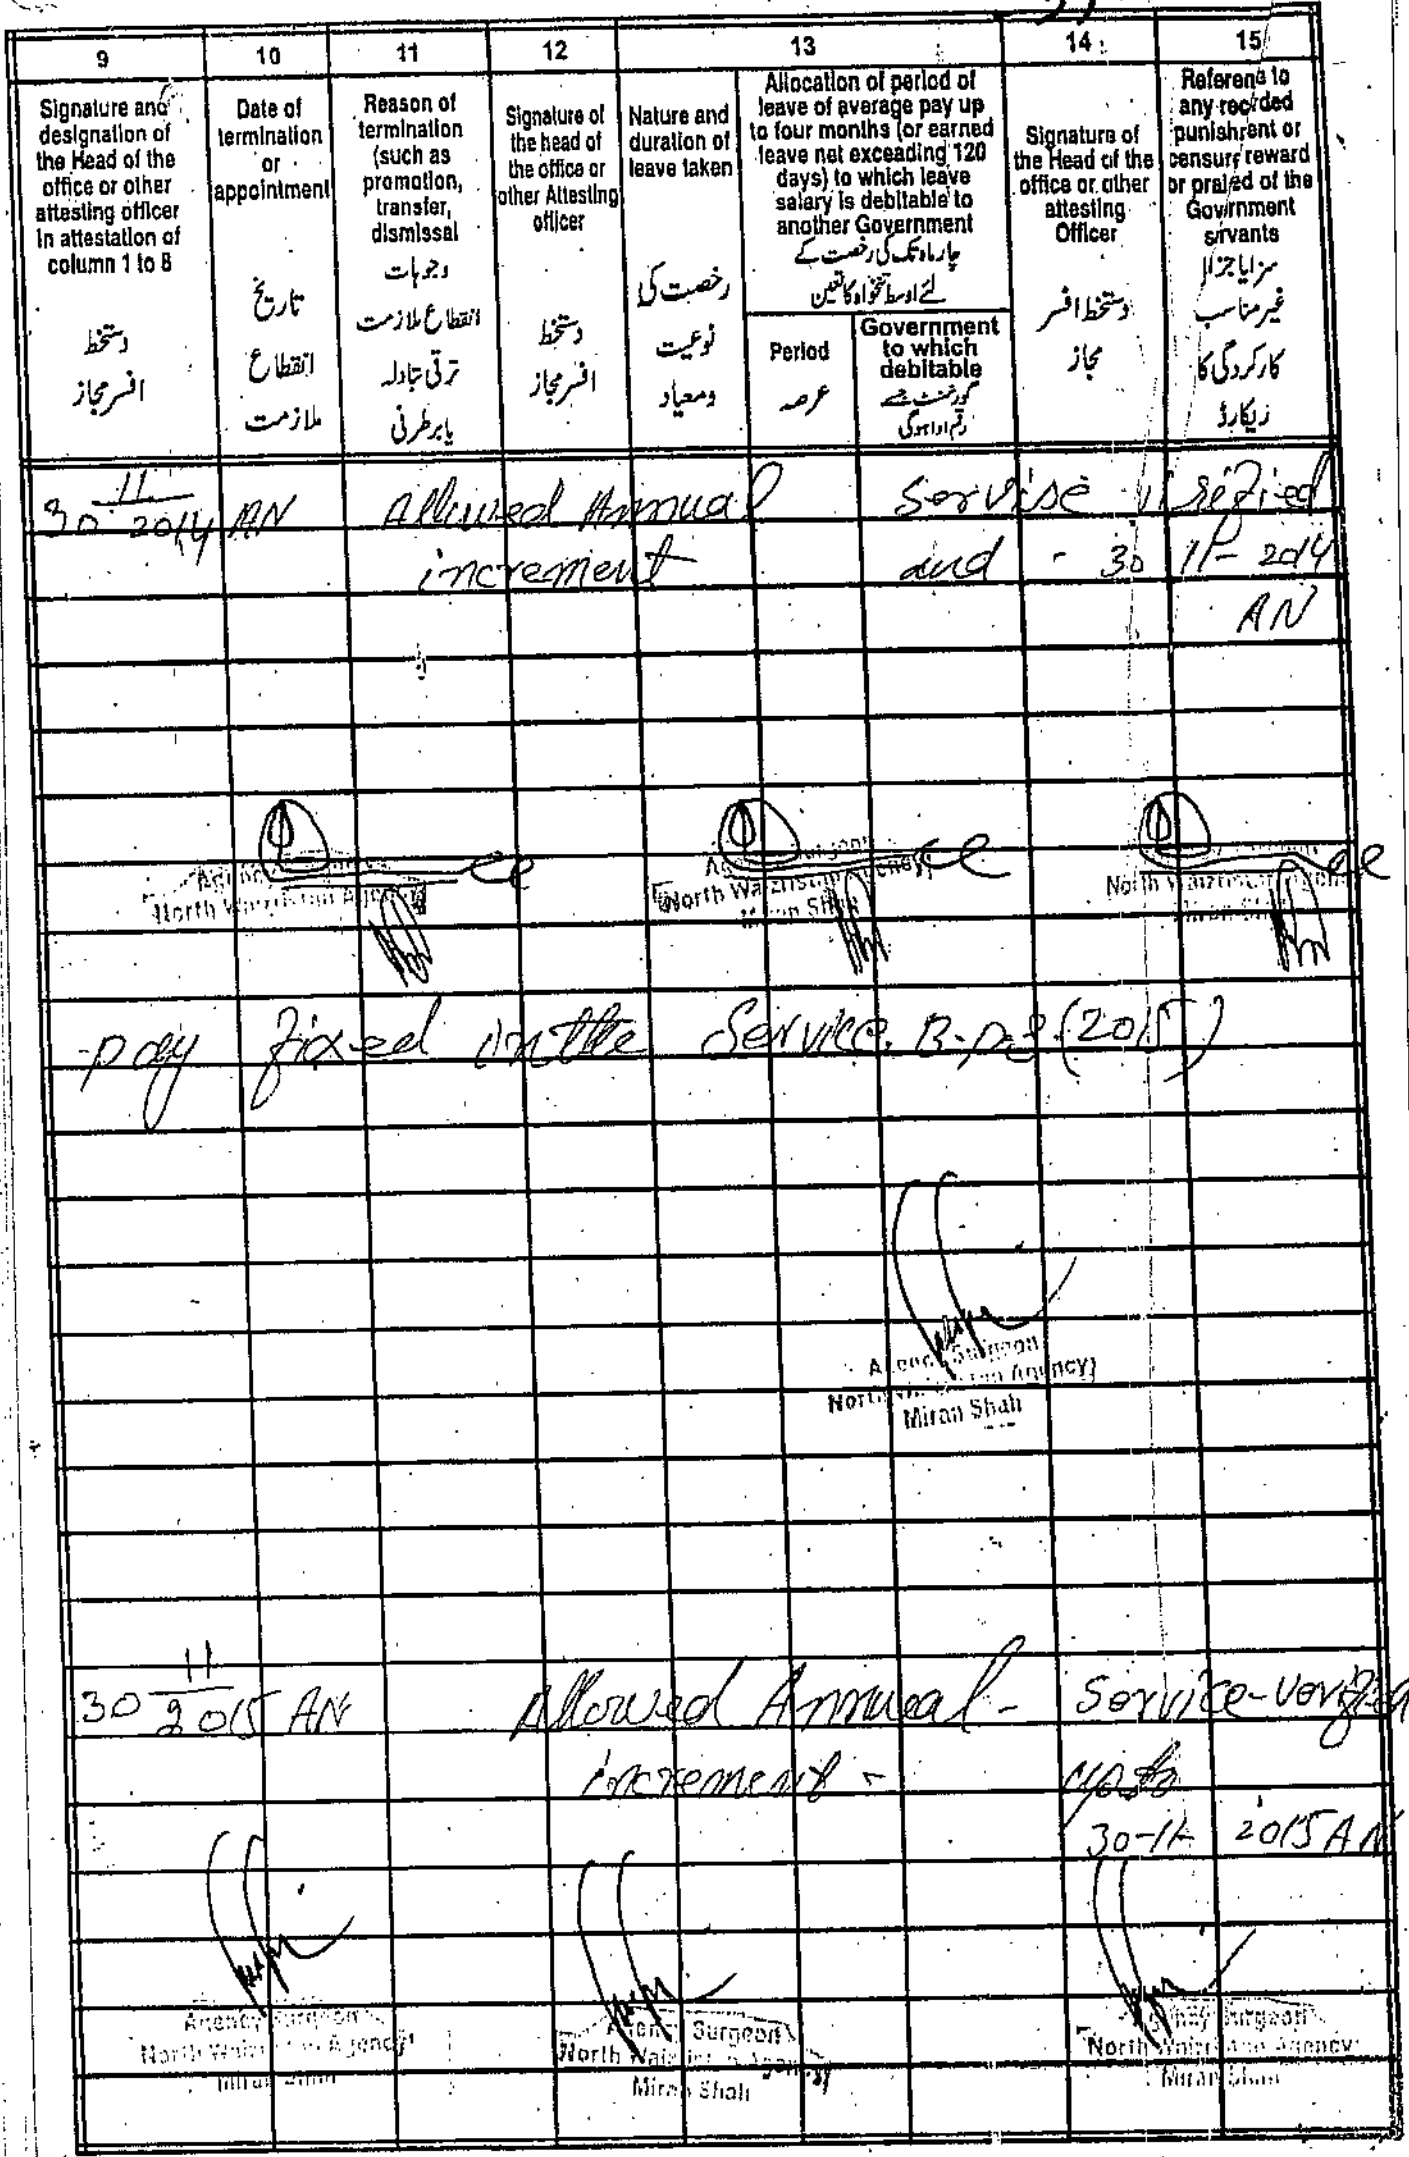 9 10 11 12 13 14 15
Signature and
designation of
the Head of the
office or other
attesting officer
in attestation of
column 1 to 8
دستخط
افسر مجاز
Date of
termination
or
appointment
تاریخ
انقطاع
ملازمت
Reason of
termination
(such as
promotion,
transfer,
dismissal
وجوہات
انقطاع ملازمت
ترقی تبادلہ
یا برطرفی
Signature of
the head of
the office or
other Attesting
officer
دستخط
افسر مجاز
Nature and
duration of
leave taken
رخصت کی
نوعیت
ومعیاد
Allocation of period of
leave of average pay up
to four months (or earned
leave net exceeding 120
days) to which leave
salary is debitable to
another Government
چار ماہ تک کی رخصت کے
لئے اوسط تنخواہ کا تعین
Period
عرصہ
Government
to which
debitable
گورنمنٹ جسے
رقم ادا ہوگی
Signature of
the Head of the
office or other
attesting
Officer
دستخط افسر
مجاز
Reference to
any recorded
punishment or
censure reward
or praised of the
Government
servants
سزا یا جزا
غیر مناسب
کارکردگی کا
ریکارڈ
30 11 2014 AN Allowed Annual Servise
increment and - 30 11- 2014
AN
North Waizristan Agency
North Waizristan Agency
Miran Shah
North Waizristan Agency
Miran Shah
pay fixed in the Service B.ps (2015)
Agency Surgeon
North Waizristan Agency
Miran Shah
30 11 2015 AN Allowed Annual - Service-verified
increment - upto
30-11- 2015 AN
Agency Surgeon
North Waizristan Agency
Miran Shah
Agency Surgeon
North Waizristan Agency
Miran Shah
Agency Surgeon
North Waizristan Agency
Miran Shah